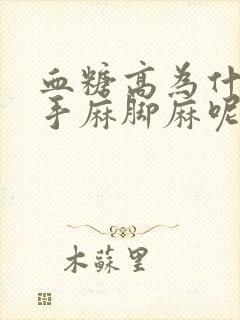 血糖高為什
手麻脚麻呢
木蘇里